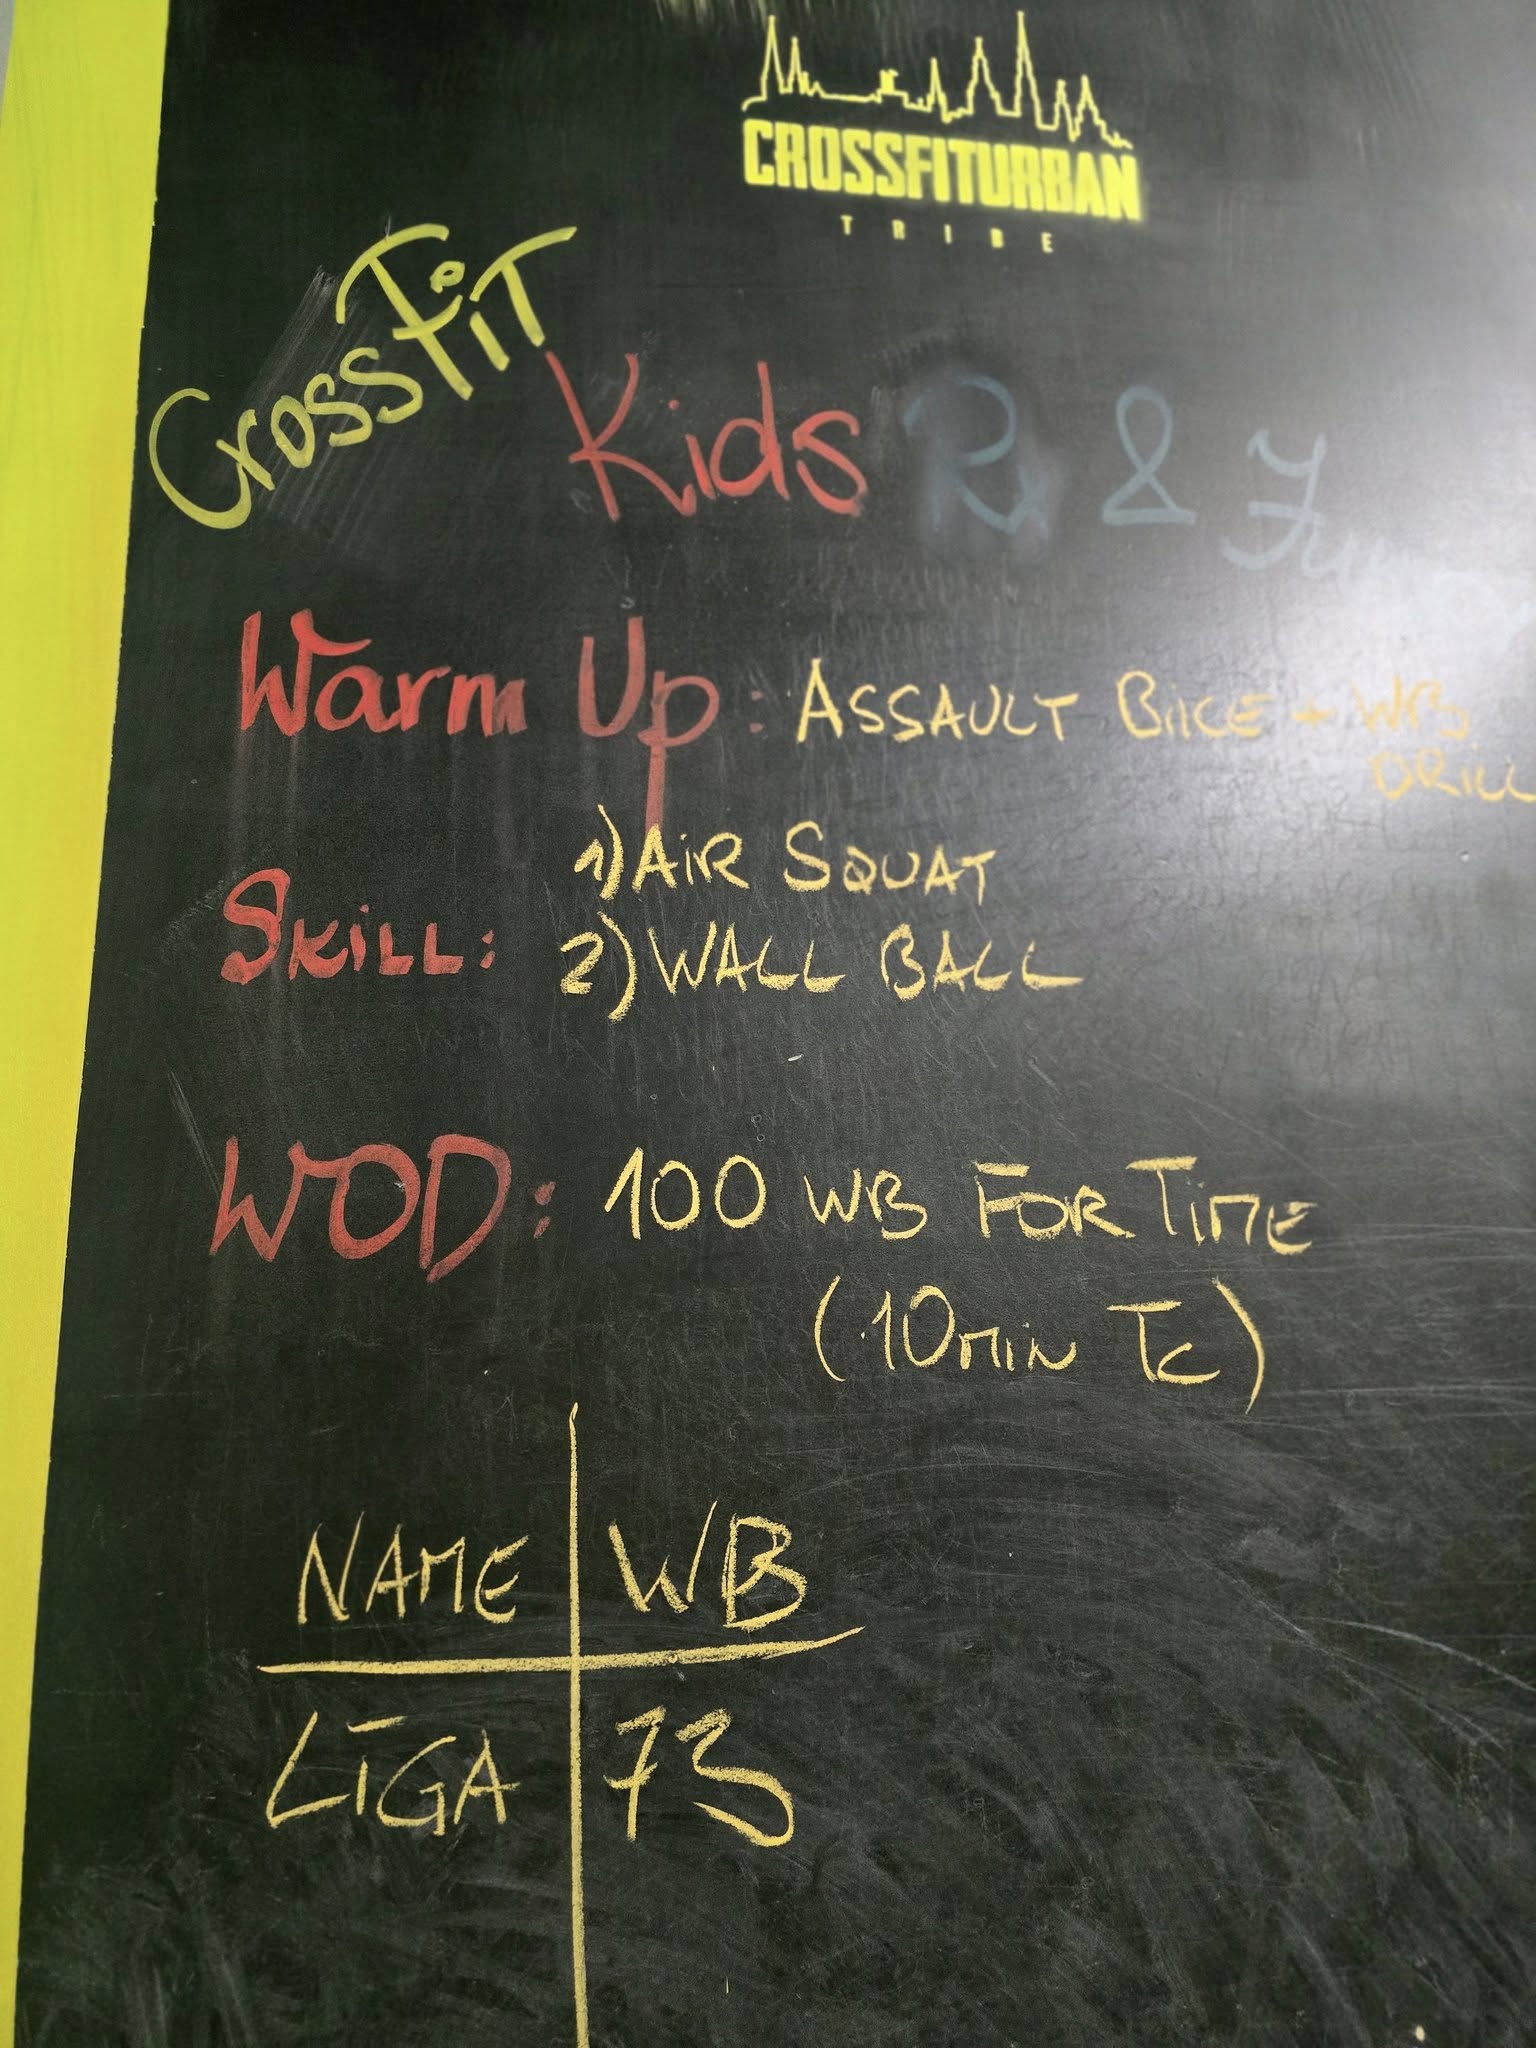 CROSSFITURBAN
TRIBE
CrossFit
Kids Rx &
Warm Up: ASSAULT BIKE + WB
DRILL
1) AiR SQUAT
SKiLL:
2) WALL BALL
WOD: 100 WB FOR TiME
(10 min Tc)
NAME WB
LĪGA 73